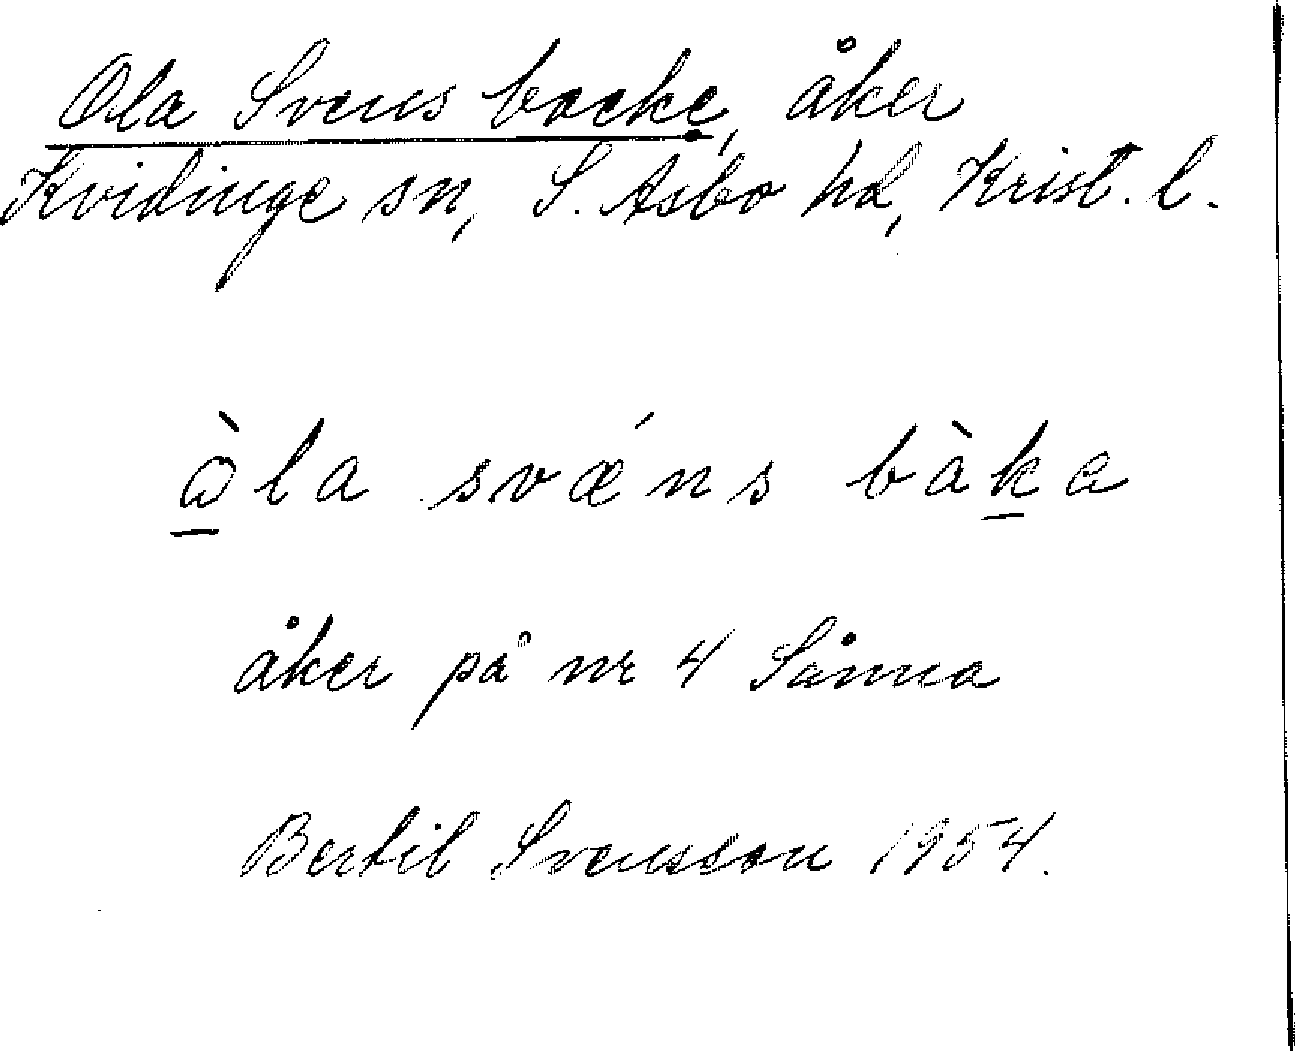 Ola Svens backe, åker
Kvidinge sn, S. Åsbo hd, Krist. l.
àla svǽns bàka
åker på nr 4 Sånna
Bertil Svensson 1954.